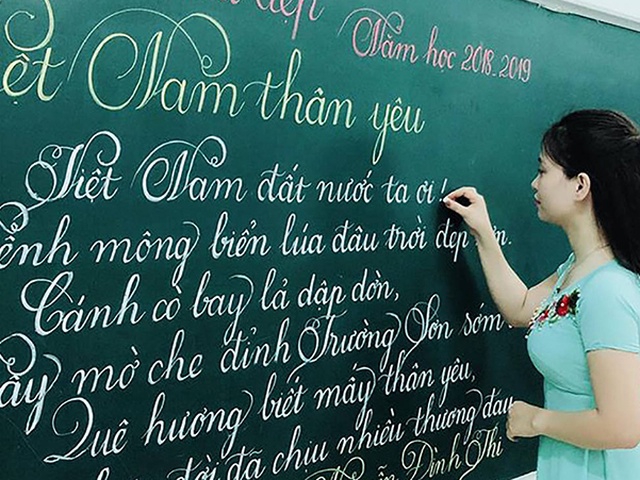 đẹp
Năm học 2018-2019
ệt Nam thân yêu
Việt Nam đất nước ta ơi!
ênh mông biển lúa đâu trời đẹp ơn.
Cánh cò bay lả dập dờn,
ây mờ che đỉnh Trường Sơn sớm
Quê hương biết mấy thân yêu,
đời đã chịu nhiều thương đau
Đình Thi